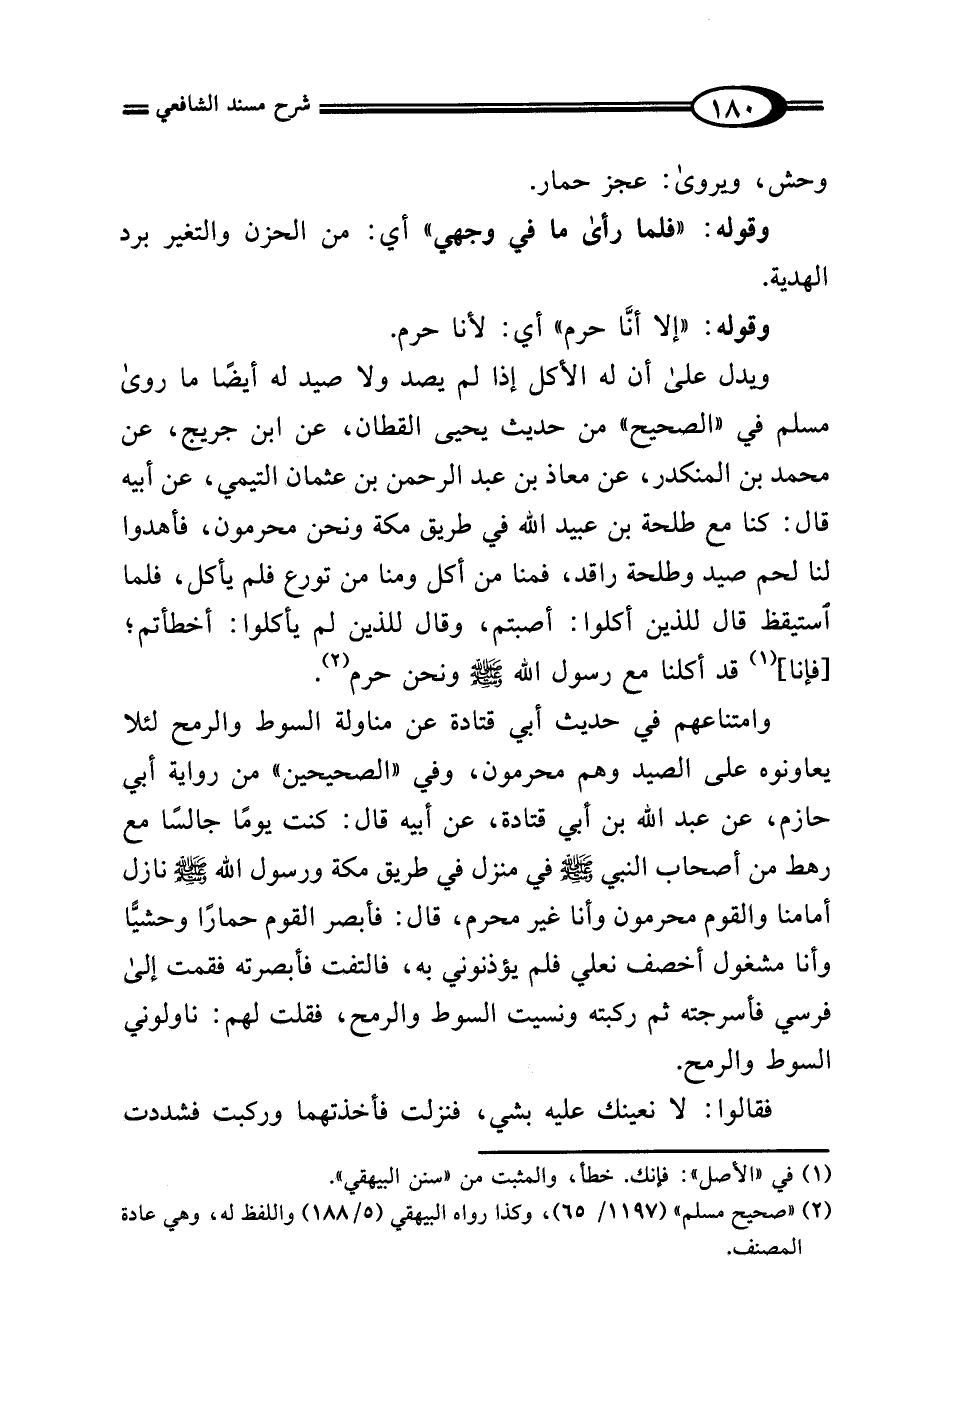 ١٨٠ شرح مسند الشافعي
وحش، ويروىٰ: عجز حمار.
وقوله: «فلما رأىٰ ما في وجهي» أي: من الحزن والتغير برد
الهدية.
وقوله: «إلا أنَّا حرم» أي: لأنا حرم.
ويدل علىٰ أن له الأكل إذا لم يصد ولا صيد له أيضًا ما روىٰ
مسلم في «الصحيح» من حديث يحيى القطان، عن ابن جريج، عن
محمد بن المنكدر، عن معاذ بن عبد الرحمن بن عثمان التيمي، عن أبيه
قال: كنا مع طلحة بن عبيد الله في طريق مكة ونحن محرمون، فأهدوا
لنا لحم صيد وطلحة راقد، فمنا من أكل ومنا من تورع فلم يأكل، فلما
ٱستيقظ قال للذين أكلوا: أصبتم، وقال للذين لم يأكلوا: أخطأتم؛
[فإنا](١) قد أكلنا مع رسول الله ﷺ ونحن حرم(٢).
وامتناعهم في حديث أبي قتادة عن مناولة السوط والرمح لئلا
يعاونوه على الصيد وهم محرمون، وفي «الصحيحين» من رواية أبي
حازم، عن عبد الله بن أبي قتادة، عن أبيه قال: كنت يومًا جالسًا مع
رهط من أصحاب النبي ﷺ في منزل في طريق مكة ورسول الله ﷺ نازل
أمامنا والقوم محرمون وأنا غير محرم، قال: فأبصر القوم حمارًا وحشيًّا
وأنا مشغول أخصف نعلي فلم يؤذنوني به، فالتفت فأبصرته فقمت إلىٰ
فرسي فأسرجته ثم ركبته ونسيت السوط والرمح، فقلت لهم: ناولوني
السوط والرمح.
فقالوا: لا نعينك عليه بشي، فنزلت فأخذتهما وركبت فشددت
(١) في «الأصل»: فإنك. خطأ، والمثبت من «سنن البيهقي».
(٢) «صحيح مسلم» (١١٩٧/ ٦٥)، وكذا رواه البيهقي (٥/١٨٨) واللفظ له، وهي عادة
المصنف.